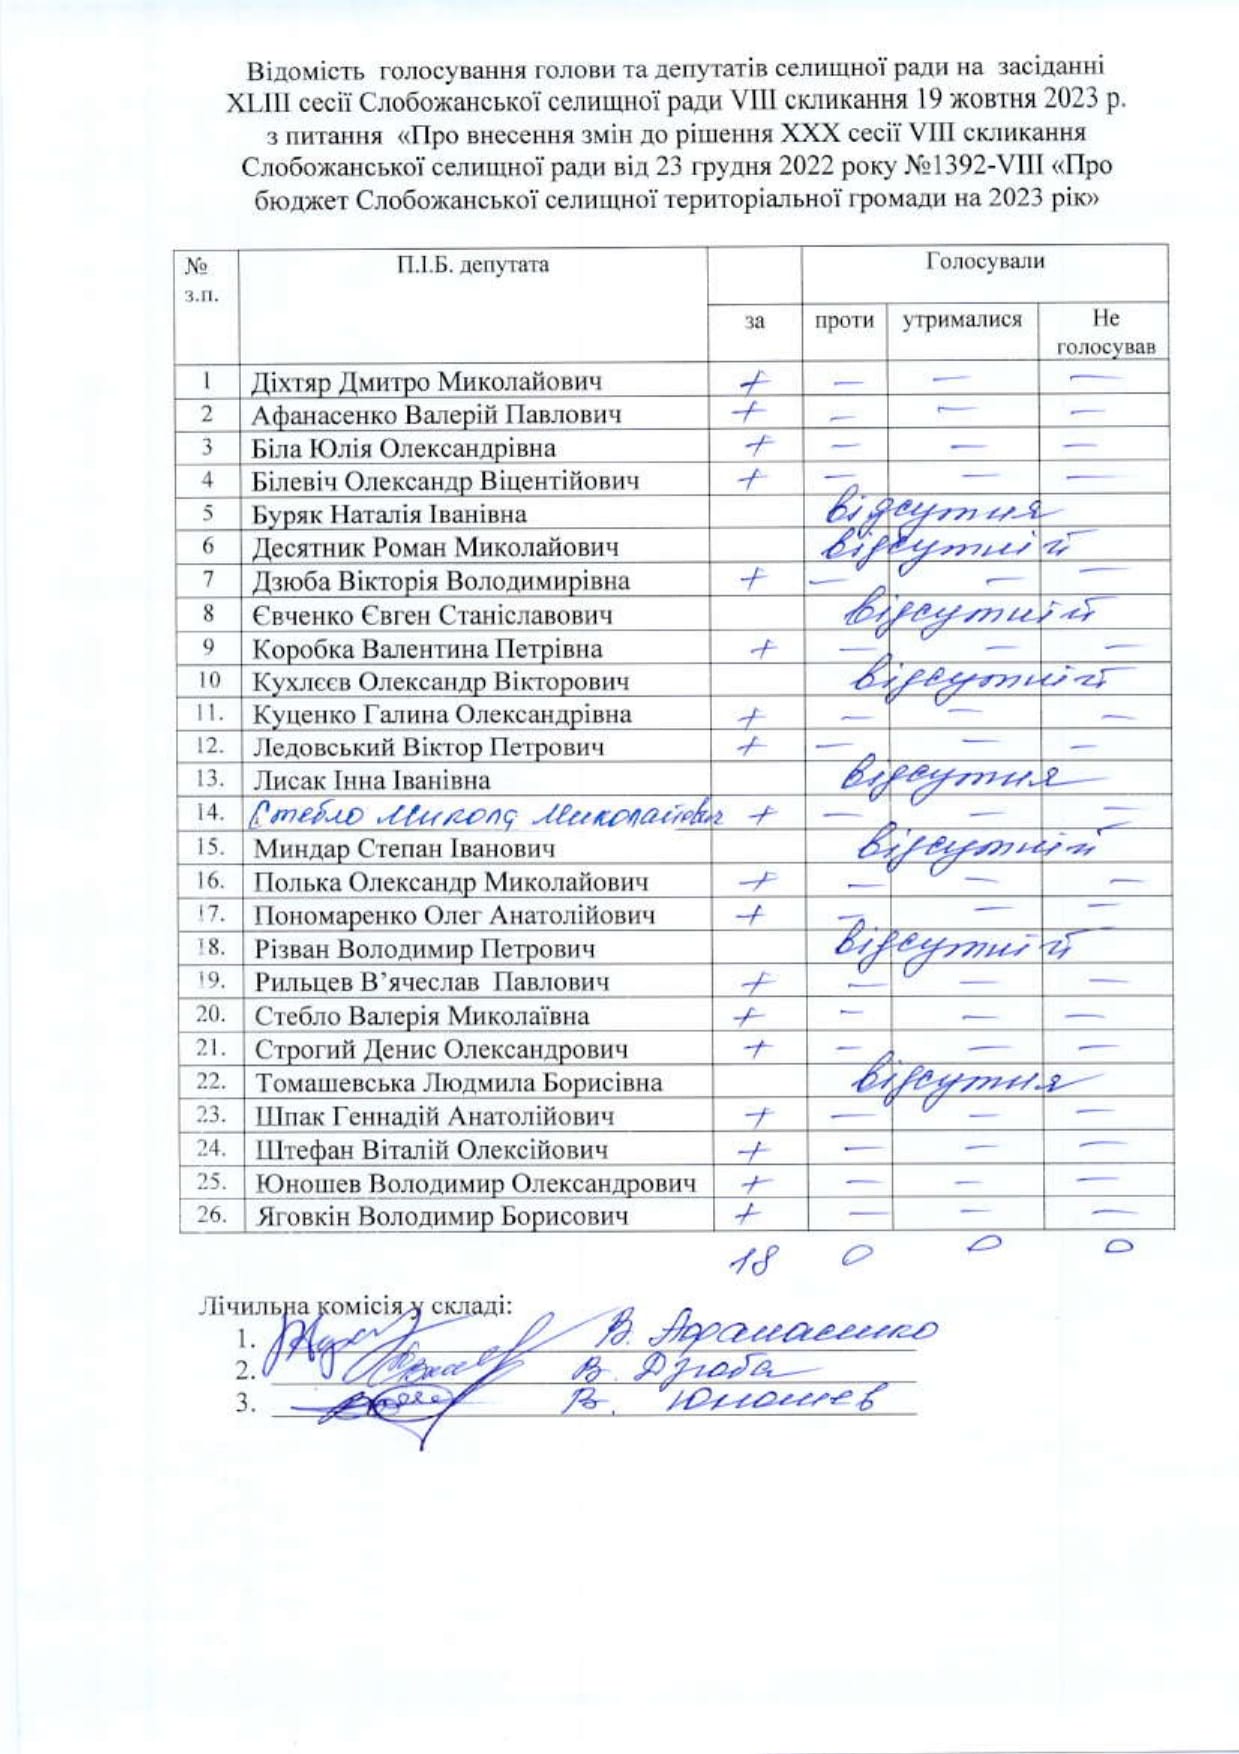 Відомість голосування голови та депутатів селищної ради на засіданні
XLIII сесії Слобожанської селищної ради VIII скликання 19 жовтня 2023 р.
з питання «Про внесення змін до рішення XXX сесії VIII скликання
Слобожанської селищної ради від 23 грудня 2022 року №1392-VIII «Про
бюджет Слобожанської селищної територіальної громади на 2023 рік»
№ з.п. П.І.Б. депутата Голосували
за проти утрималися Не голосував
1 Діхтяр Дмитро Миколайович + — — —
2 Афанасенко Валерій Павлович + — — —
3 Біла Юлія Олександрівна + — — —
4 Білевіч Олександр Віцентійович + — — —
5 Буряк Наталія Іванівна відсутня
6 Десятник Роман Миколайович відсутній
7 Дзюба Вікторія Володимирівна + — — —
8 Євченко Євген Станіславович відсутній
9 Коробка Валентина Петрівна + — — —
10 Кухлєєв Олександр Вікторович відсутній
11. Куценко Галина Олександрівна + — — —
12. Ледовський Віктор Петрович + — — —
13. Лисак Інна Іванівна відсутня
14. Стебло Микола Миколайович + — — —
15. Миндар Степан Іванович відсутній
16. Полька Олександр Миколайович + — — —
17. Пономаренко Олег Анатолійович + — — —
18. Різван Володимир Петрович відсутній
19. Рильцев В’ячеслав Павлович + — — —
20. Стебло Валерія Миколаївна + — — —
21. Строгий Денис Олександрович + — — —
22. Томашевська Людмила Борисівна відсутня
23. Шпак Геннадій Анатолійович + — — —
24. Штефан Віталій Олексійович + — — —
25. Юношев Володимир Олександрович + — — —
26. Яговкін Володимир Борисович + — — —
18 0 0 0
Лічильна комісія у складі:
1. В. Афанасенко
2. В. Дзюба
3. В. Юношев